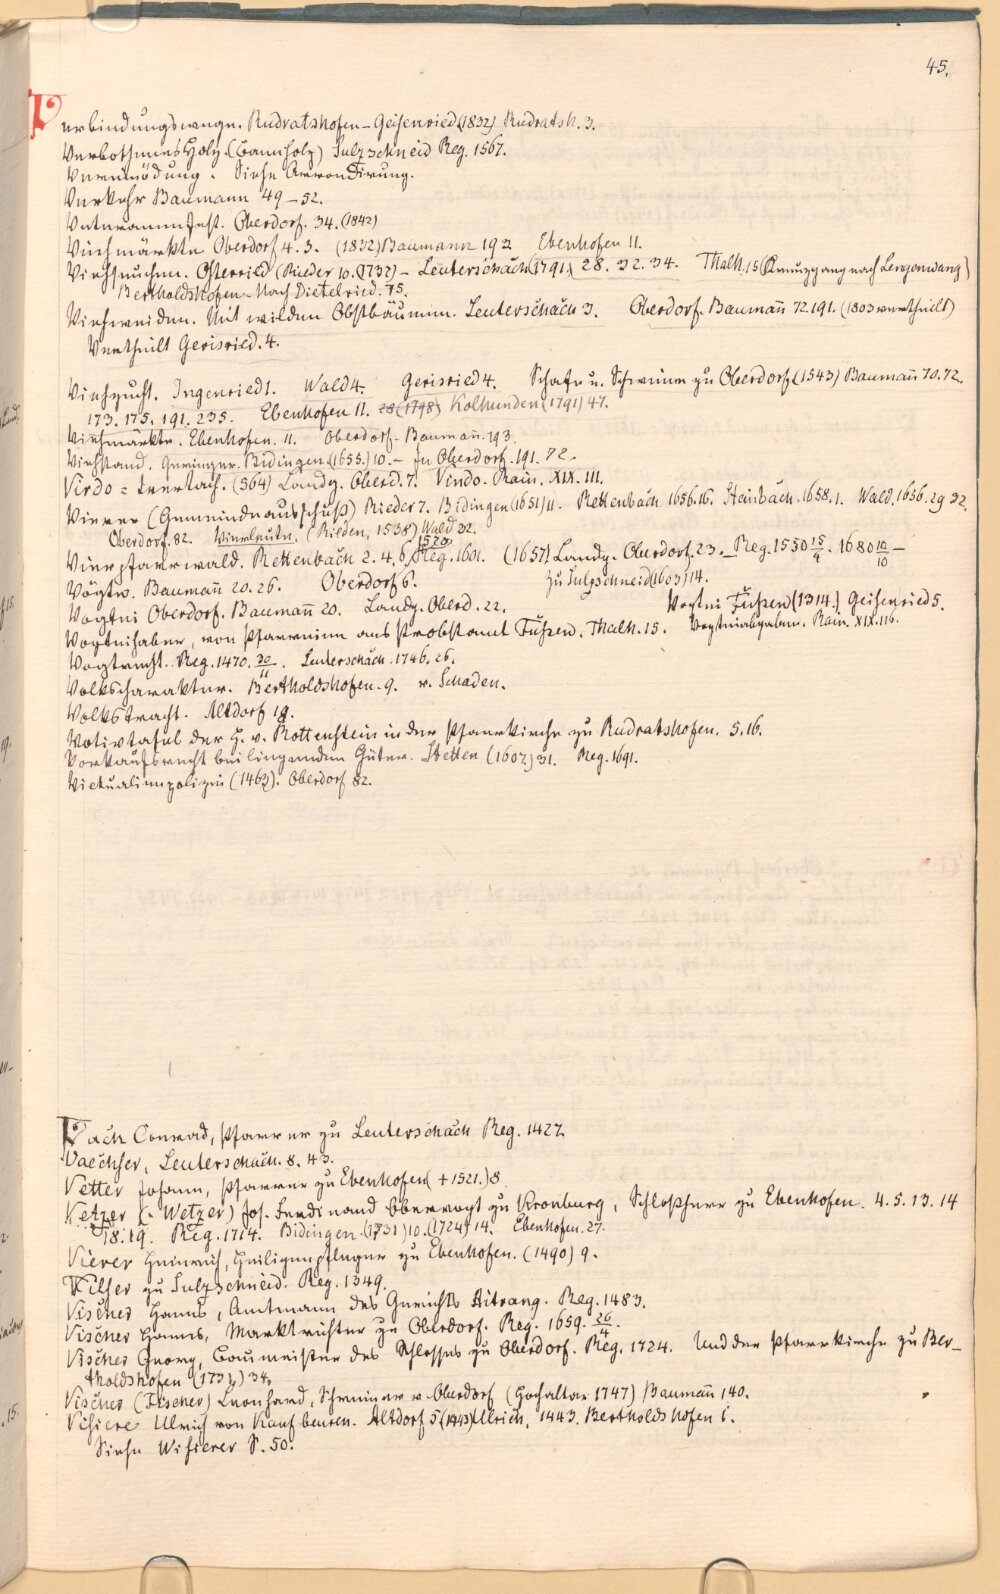 45.
Verbindungswege. Rudratshofen-Geisenried (1832) Rudratsh. 3.
Verbothenes Holz (Bannholz) Sulzschneid Reg. 1567.
Vereinödung. Siehe Arrondirung.
Verkehr Baumann 49-52.
Veteranenfest. Oberdorf. 34. (1842)
Viehmärkte Oberdorf 4. 3. (1832) Baumann 192 Ebenhofen 11.
Viehseuchen. Osterried (Rieder 10. (1732) - Leuterschach (1791) 28. 32. 34. Thalh. 15 (Kreuzgang nach Lengenwang)
Bertholdshofen - Nach Dietelried. 75.
Viehweiden. Mit wilden Obstbäumen. Leuterschach 3. Oberdorf. Baumañ 72. 191. (1803 vertheilt)
Vertheilt Gerisried. 4.
Viehzucht. Ingenried 1. Wald 4. Gerisried 4. Schafe u. Schweine zu Oberdorf (1543) Baumañ 70. 72.
173. 175. 191. 235. Ebenhofen 11. 28 (1798) Kolhunden (1791) 47.
Viehmärkte. Ebenhofen. 11. Oberdorf - Baumañ. 193.
Viehstand. Geringer. Bidingen (1655.) 10. - In Oberdorf. 191. 72.
Virdo = Wertach. (564) Landg. Oberd. 7. Vindo. Rain. XIX. 111.
Vierer (Gemeindeausschuß) Rieder 7. Bidingen (1651) 11. Rettenbach 1656. 16. Steinbach. 1658. 1. Wald. 1656. 29 32.
Oberdorf. 82. Viererleute. (Rieden, 1538) Wald 32.
1570
Vierpfarrwald. Rettenbach 2. 4. 6. Reg. 1601. (1657) Landg. Oberdorf. 23. - Reg. 1550 15/4. 1680 10/10 -
Vögte. Baumañ 20. 26. Oberdorf 6. zu Sulzschneid (1603) 14.
Vogtei Oberdorf. Baumañ 20. Landg. Oberd. 22. Vogtei Füßen (1314.) Geisenried 5.
Vogteihaber, von Pfarreien ans Probstamt Füßen. Thalh. 15. Vogteiabgaben. Rain. XIX. 116.
Vogtrecht. Reg. 1470. 30/11. Leuterschach. 1746. 26.
Volkscharakter. Bertholdshofen. 9. v. Schaden.
Volkstracht. Altdorf 18.
Votivtafel der H. v. Rottenstein in der Pfarrkirche zu Rudratshofen. 5. 16.
Vorkaufsrecht bei liegenden Güter. Stetten (1607) 31. Reg. 1691.
Victualienpolizei (1463). Oberdorf 82.
Vach Conrad, Pfarrer zu Leuterschach Reg. 1427
Vaechser, Leuterschach. 8. 43.
Vetter Johann, Pfarrer zu Ebenhofen (+ 1521.) 8
Vetzer (. Wetzer) Jos. Ferdinand Obervogt zu Kronburg, Schloßherr zu Ebenhofen. 4. 5. 13. 14
18. 19. Reg. 1714. Bidingen. (1731) 10. (1724) 14. Ebenhofen. 27.
Vierer Heinrich, Heiligenpfleger zu Ebenhofen. (1490) 9.
Vilser zu Sulzschneid. Reg. 1349.
Vischer Hanns, Amtmann des Gerichts Aitrang. Reg. 1483.
Vischer Hanns, Marktrichter zu Oberdorf. Reg. 1659. 26/4.
Vischer Georg, Baumeister des Schlosses zu Oberdorf. Reg. 1724. Und der Pfarrkirche zu Ber-
tholdshofen (1731) 34.
Vischer (Fischer) Leonhard, Schreiner v. Oberdorf (Hochaltar 1747) Baumañ 140.
Visiere Ulrich von Kaufbeuren. Altdorf 5 (1443) Ulrich, 1443. Bertholdshofen 6.
Siehe Wisierer S. 50.